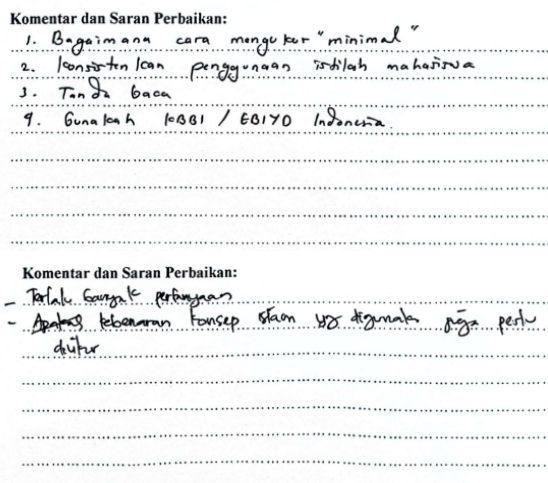 Komentar dan Saran Perbaikan:
1. Bagaimana cara mengukur "minimal"
2. Konsistenkan penggunaan istilah mahasiswa
3. Tanda baca
4. Gunakan KBBI / EBIYD Indonesia.
Komentar dan Saran Perbaikan:
- Terlalu banyak pertanyaan
- Apakah kebenaran konsep yg digunakan juga perlu
diukur